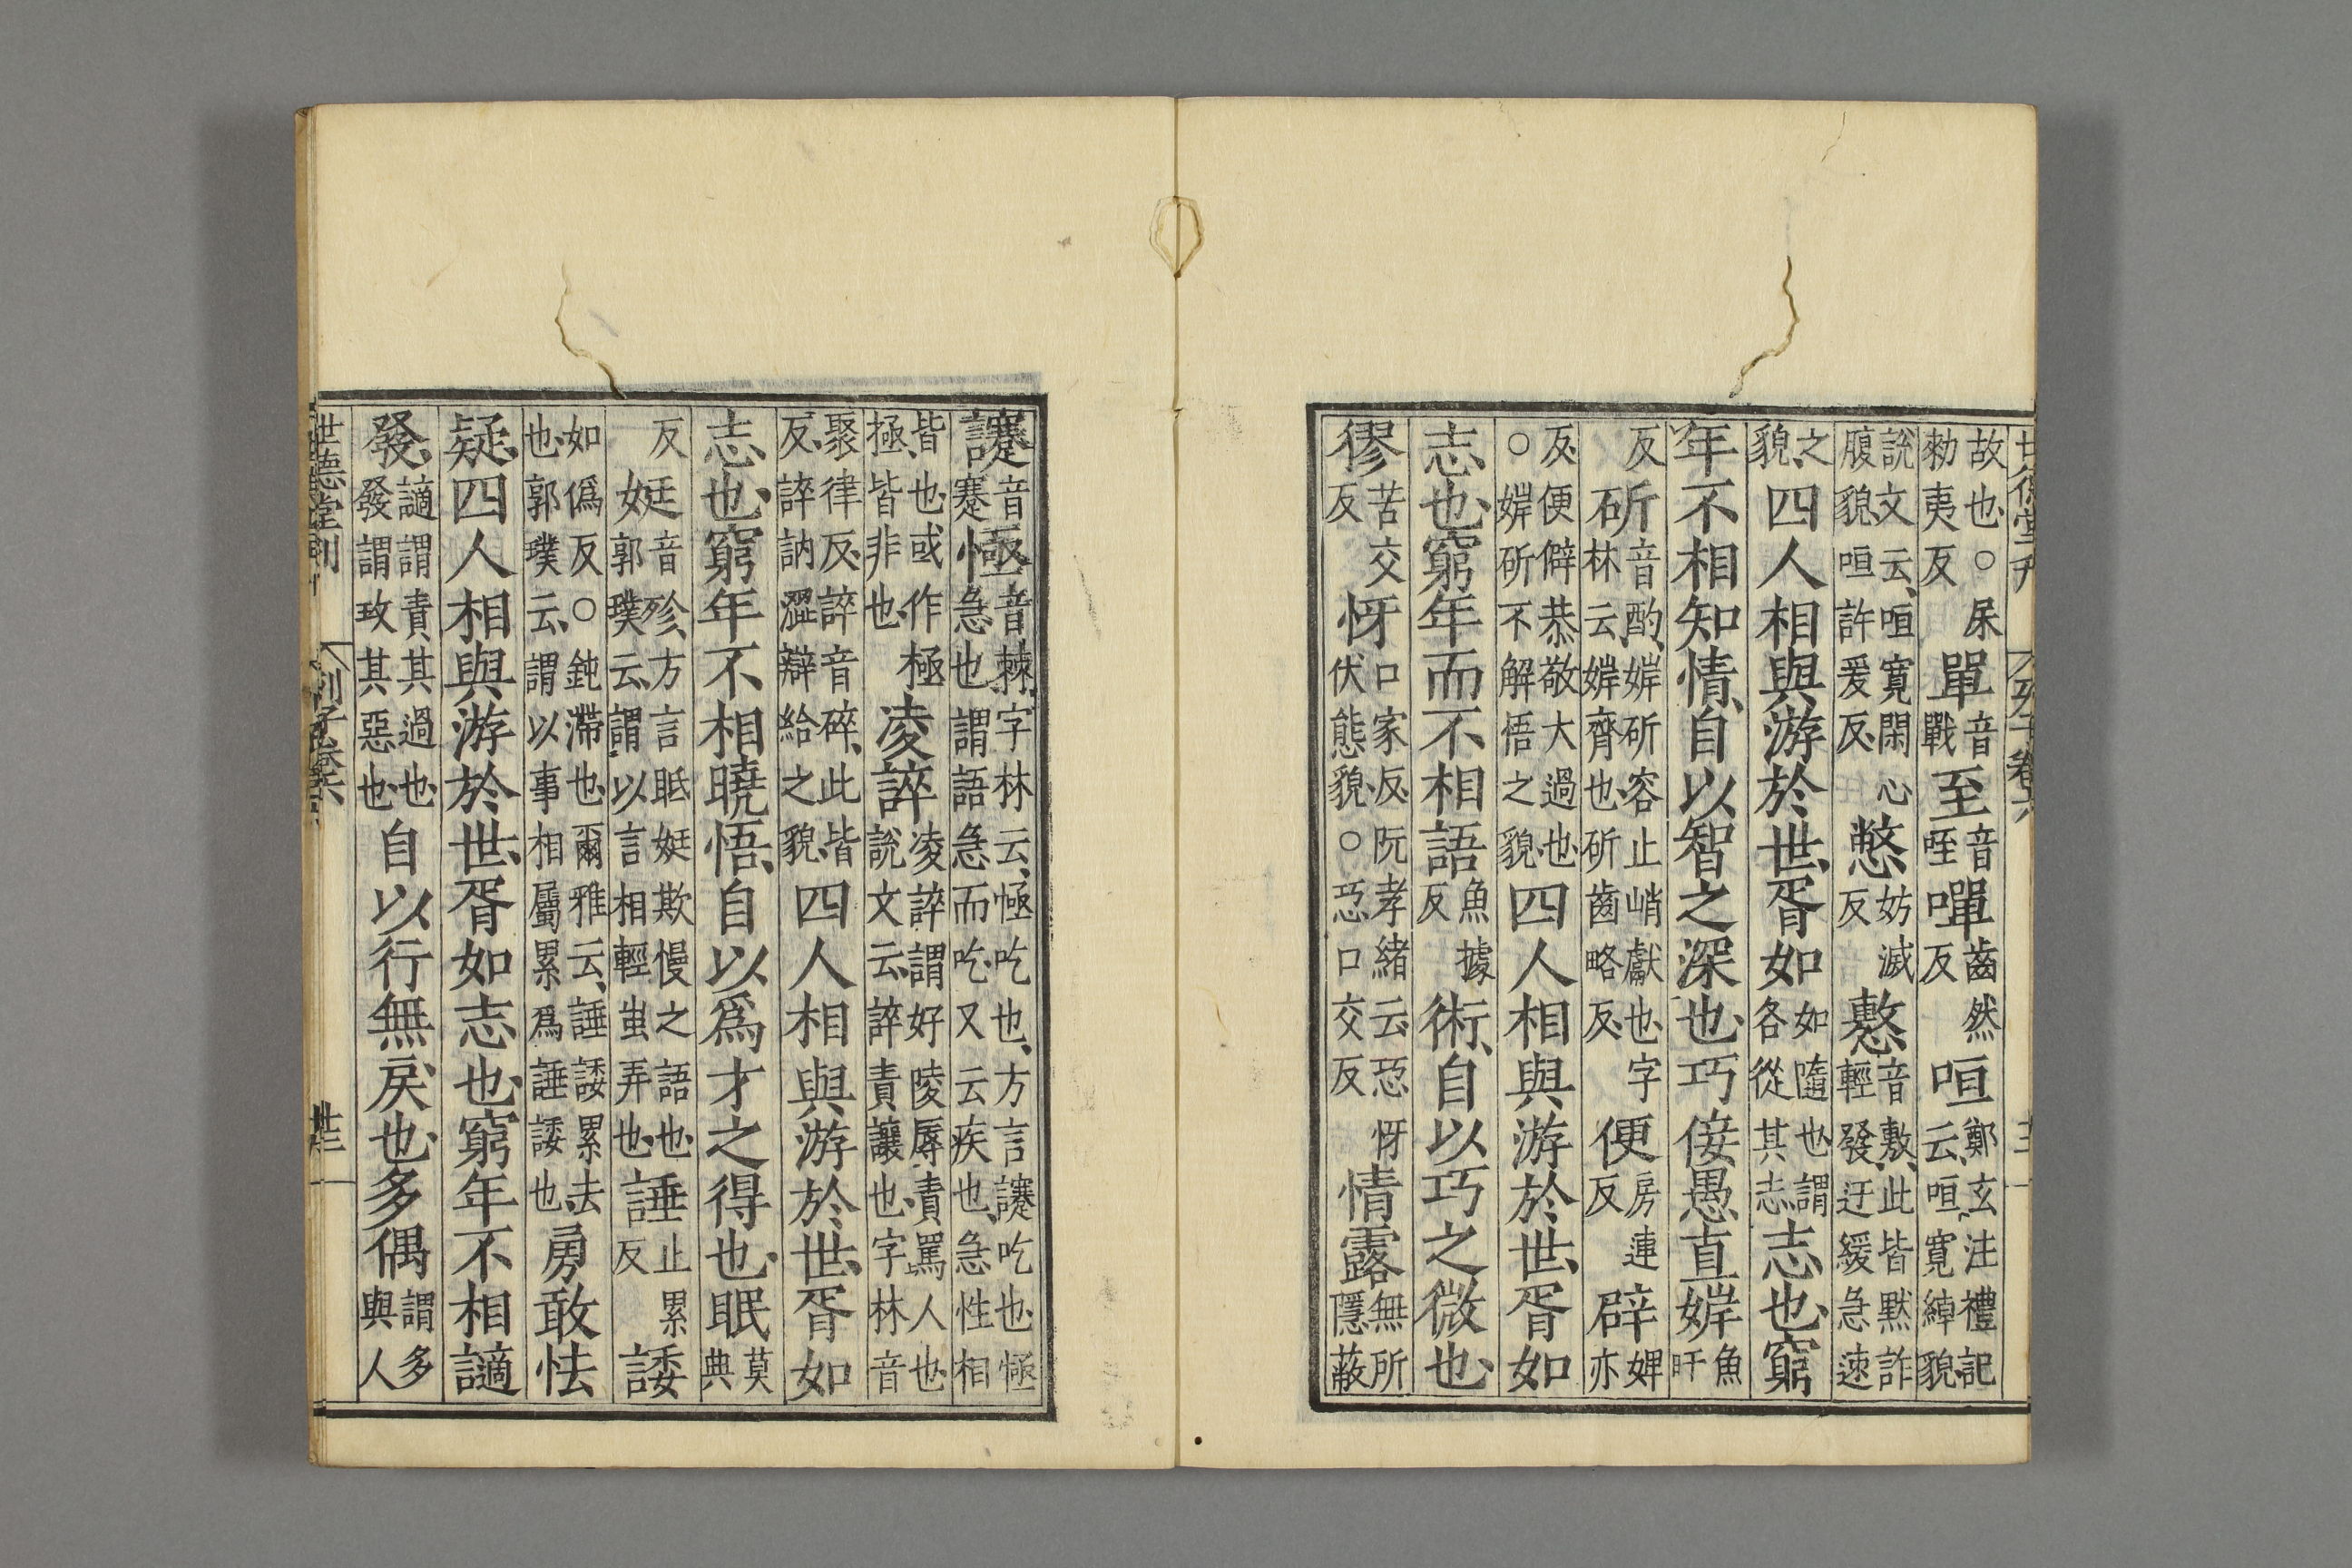 故也○㞙勑夷反單音戰至音咥嘽齒然反咺鄭玄注禮記云咺寬綽貌
說文云咺寬閑心腹貌咺許爰反憋妨滅反懯音敷此皆默詐輕發迂緩急速
之貌四人相與游於世胥如如隨也謂各從其志志也窮
年不相知情自以智之深也巧佞愚直婩魚旰
反斫音酌婩斫容止峭巘也字林云婩齊也斫齒略反便房連反辟婢亦
反便僻恭敬大過也○婩斫不解悟之貌四人相與游於世胥如
志也窮年而不相語魚據反術自以巧之微也
㺒苦交反㤉口家反阮孝緒云恐㤉伏態貌○恐口交反情露無所隱蔽
𧮈音蹇㥛音棘字林云㥛吃也方言𧮈吃也㥛急也謂語急而吃又云疾也急性相
皆也或作極極皆非也凌誶凌誶謂好陵辱責罵人也說文云誶責讓也字林音
聚律反誶音碎此皆反誶訥澀辯給之貌四人相與游於世胥如
志也窮年不相曉悟自以爲才之得也眠莫典
反娗音殄方言眠娗欺慢之語也郭璞云謂以言相輕蚩弄也諈止累反諉
如僞反○鈍滯也爾雅云諈諉累去也郭璞云謂以事相屬累爲諈諉也勇敢怯
疑四人相與游於世胥如志也窮年不相讁
發讁謂責其過也發謂攻其惡也自以行無戾也多偶謂多與人
世德堂刊 列子卷六 廿三